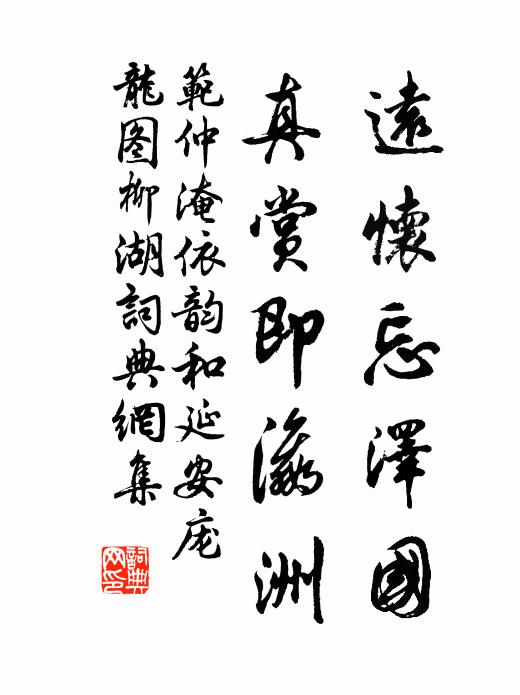 遠懷忘澤國
真赏即瀛洲
範仲淹依韵和延安庞
龍图柳湖詞典網集
詞典
网印